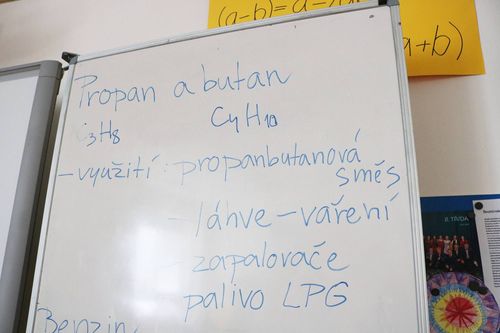 (a-b)=a
a+b)
Propan a butan
C3H8 C4H10
- využití: propanbutanová
směs
- láhve - vaření
- zapalovače
palivo LPG
Benzin
II. TŘÍDA